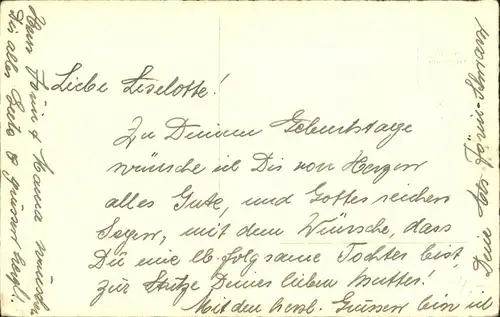 Liebe Liselotte!
Zu Deinem Geburtstage
wünsche ich Dir von Herzen
alles Gute, und Gottes reichen
Segen, mit dem Wunsche, dass
Du eine lb. folgsame Tochter bist,
zur Stütze Deiner lieben Mutter!
Mit den herzl. Grüssen bin ich
Deine
Hans
& Mama wünschen
Dir alles Gute & grüssen herzl.!